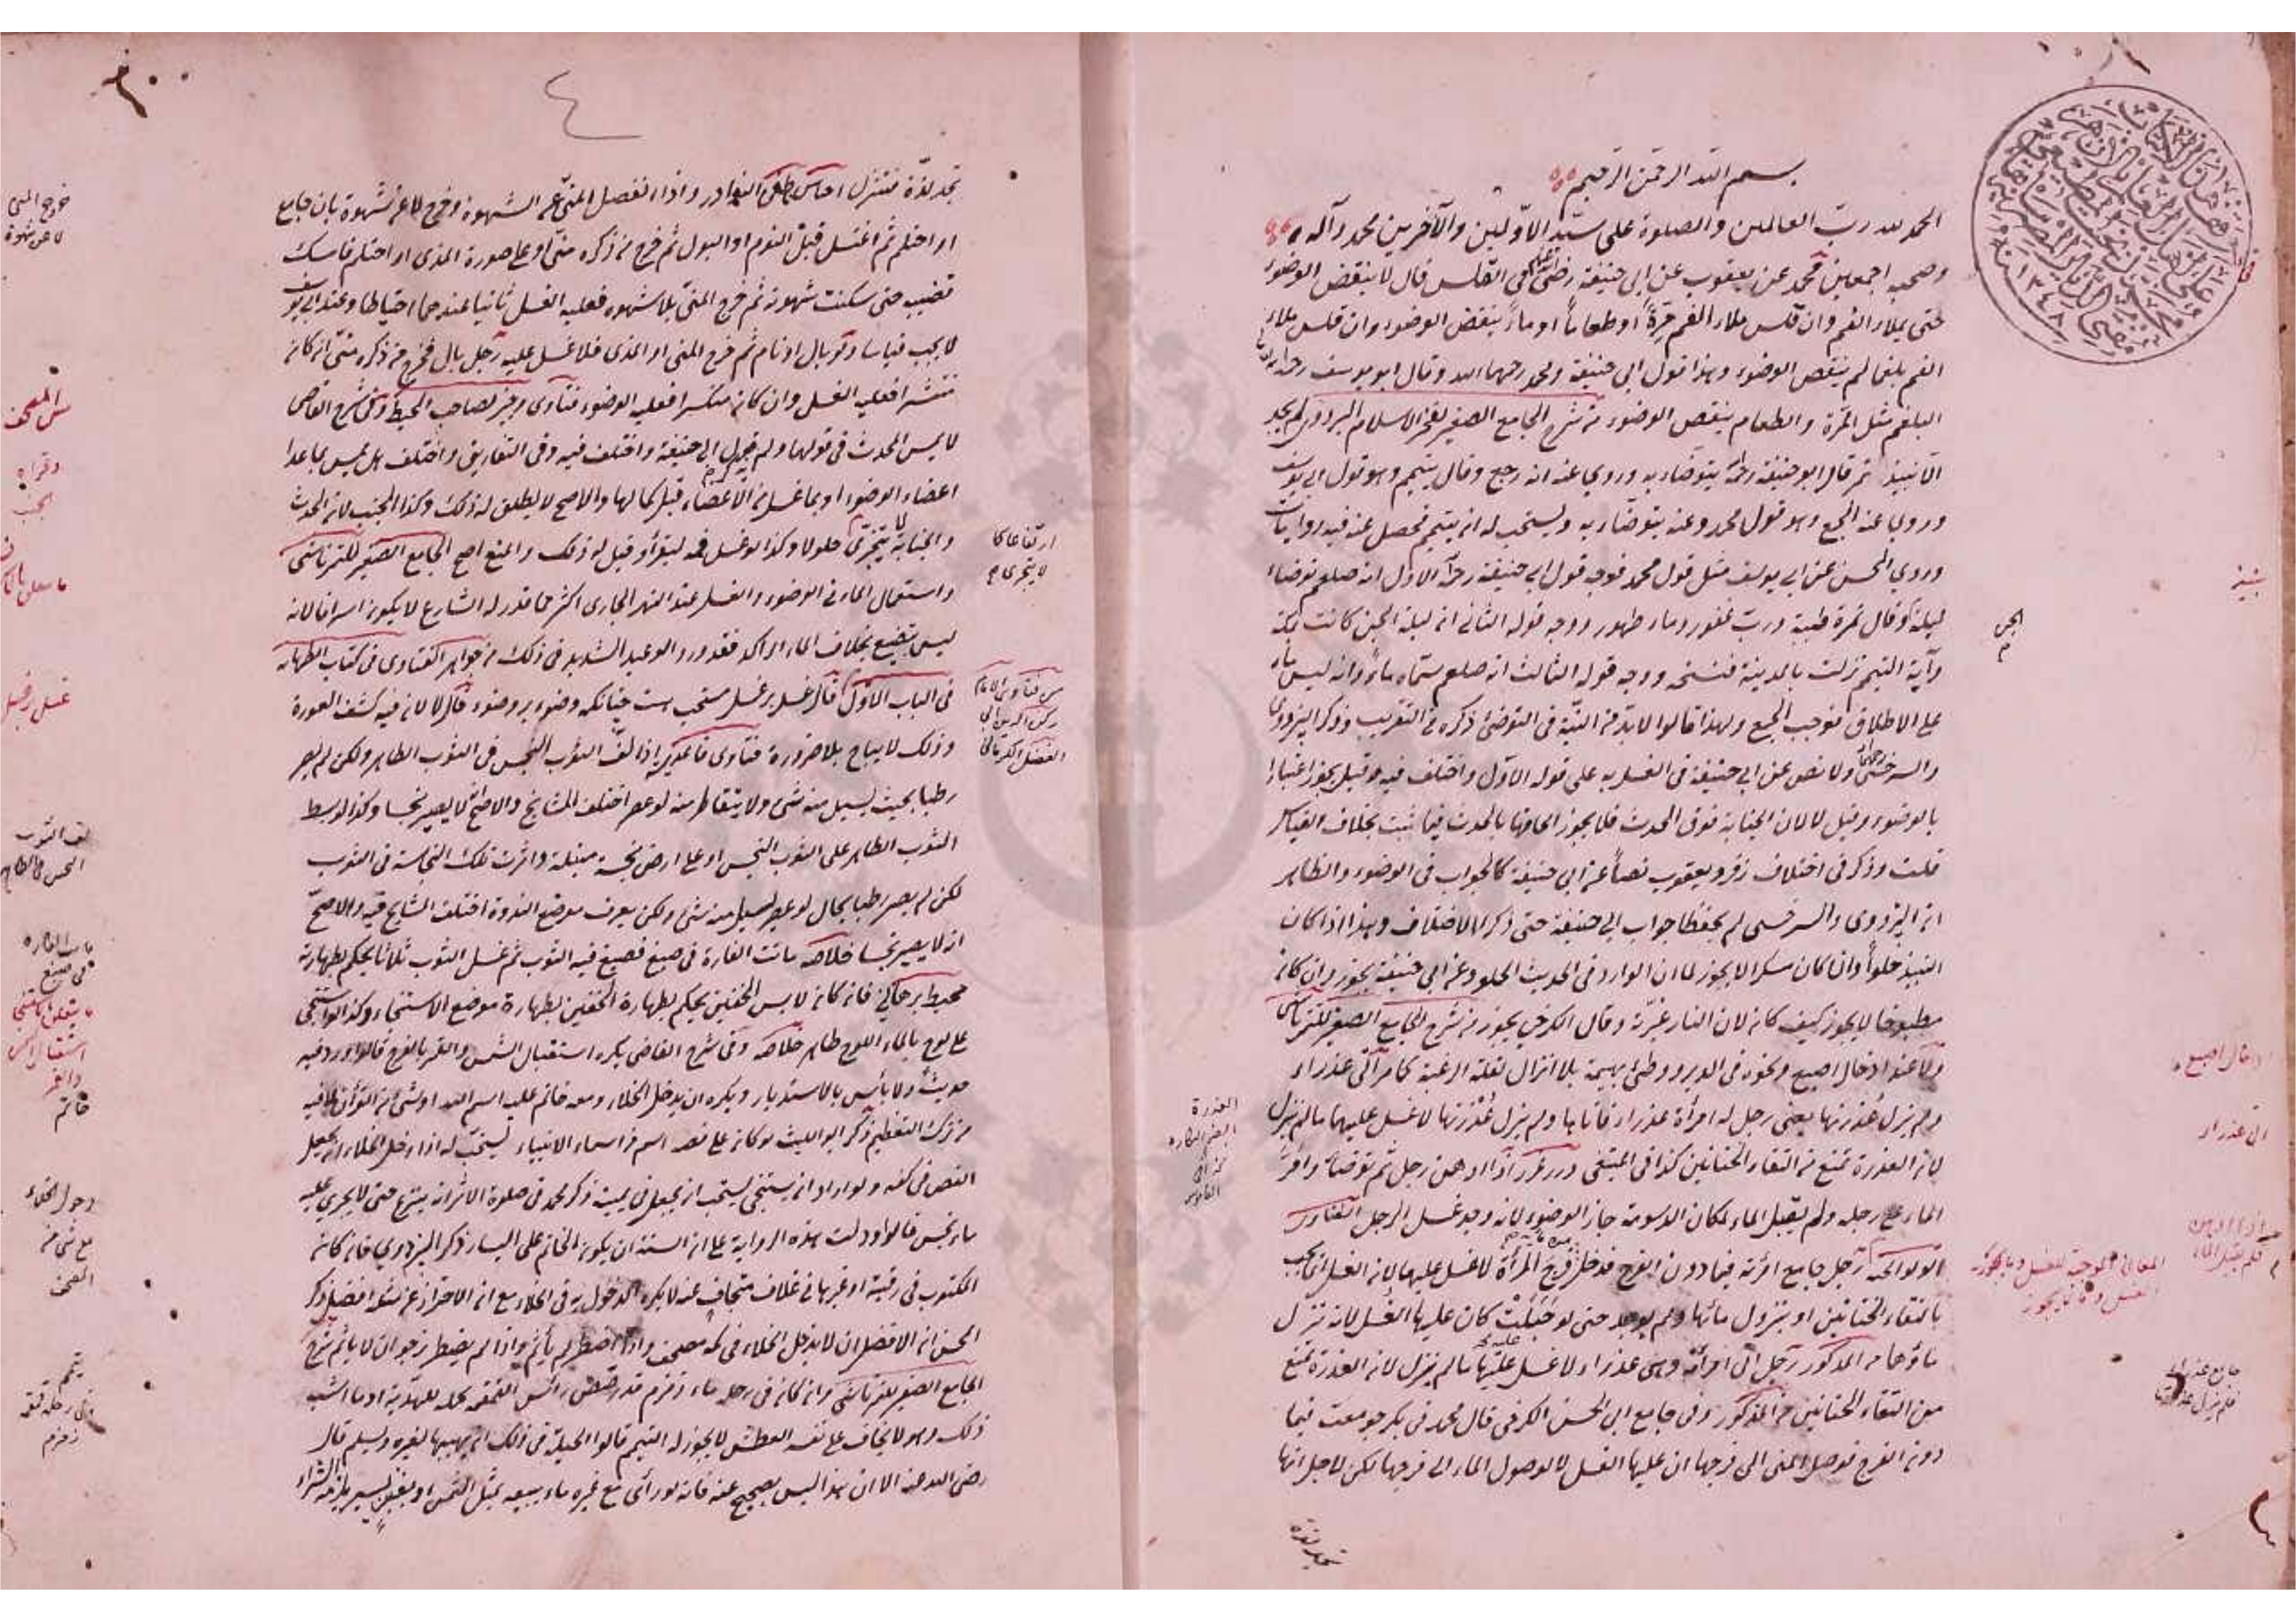 بسم الله الرحمن الرحيم
الحمد لله رب العالمين والصلوة على سيد الاولين والآخرين محمد وآله
وصحبه اجمعين محمد عن يعقوب عن ابي حنيفة رضي الله عنهم في القلس قال لا ينقض الوضوء
حتى يملاء الفم وان قلس ملاء الفم مرة او طعاما او ماء ينقض الوضوء وان قلس ملاء
الفم بلغما لم ينقض الوضوء وهذا قول ابي حنيفة ومحمد رحمهما الله وقال ابو يوسف رحمه الله
البلغم مثل المرة والطعام ينقض الوضوء من شرح الجامع الصغير لفخر الاسلام البزدوي لم يجد
الا نبيذ تمر قال ابو حنيفة رحمه يتوضاء به وروي عنه انه رجع وقال يتيمم وهو قول ابي يوسف
وروي عنه الجمع وهو قول محمد وعنه يتوضاء به ويستحب له ان يتيمم فحصل عنه فيه روايات
وروي الحسن عن ابي يوسف مثل قول محمد فوجه قول ابي حنيفة رحمه الاول انه صلعم توضاء
ليلة وقال تمرة طيبة ورب غفور وماء طهور ووجه قوله الثاني ان ليلة الجن كانت بمكة
وآية التيمم نزلت بالمدينة فنسخه ووجه قوله الثالث انه صلعم سماه ماء وانه ليس بماء
على الاطلاق فوجب الجمع ولهذا قالوا لابد من النية في التوضئ ذكره في التقريب وذكر البزدوي
والسرخسي ولا نص عن ابي حنيفة في الغسل به على قوله الاول واختلف فيه وقيل يجوز اعتبارا
بالوضوء وقيل لا لان الجنابة فوق الحدث فلا يجوز الحاقها بالحدث فيما ثبت بخلاف القياس
قلت وذكر في اختلاف زفر ويعقوب نصا عن ابي حنيفة كالجواب في الوضوء والظاهر
ان البزدوي والسرخسي لم يحفظا جواب ابي حنيفة حتى ذكرا الاختلاف وهذا اذا كان
النبيذ حلوا وان كان مسكرا لا يجوز لما ان الوارد في الحديث الحلو وعن ابي حنيفة يجوز وان كان
مطبوخا لا يجوز كيف كان لان النار غيرته وقال الكرخي يجوز من شرح الجامع الصغير للتمرتاشي
ولا عند ادخال اصبع ونحوه في الدبر ووطئ بهيمة بلا انزال لقلة الرغبة كما مر اتى عذراء
ولم يزل عذرتها يعني رجل له امرأة عذراء فاتاها ولم يزل عذرتها لا غسل عليهما ما لم ينزل
لان العذرة تمنع من التقاء الختانين كذا في المبتغى درر غرر اذا ادهن رجل ثم توضأ وامر
الماء على رجله ولم يقبل الماء لمكان الدسومة جاز الوضوء لانه وجد غسل الرجل الفتاوى
الولوالجية رجل جامع امرأته فيما دون الفرج فدخل فرج المرأة لا غسل عليها لان الغسل انما يجب
بالتقاء الختانين او بنزول مائها ولم يوجد حتى لو حبلت كان عليها الغسل لانه نزل
ماؤها من المذكور رجل اتى امرأته وهي عذراء لا غسل عليه ما لم ينزل لان العذرة تمنع
من التقاء الختانين من المذكور وفي جامع ابي الحسن الكرخي قال محمد في بكر جومعت فيما
دون الفرج فوصل المني الى فرجها ان عليها الغسل لا لوصول الماء الى فرجها لكن لاجل انها
تجد لذة
نبيذ
الجن
ادخال اصبع
اتى عذراء
العذرة
تجد لذة فتنزل النوادر واذا انفصل المني عن الشهوة وخرج لا عن شهوة بان جامع
او احتلم ثم اغتسل قبل النوم او البول ثم خرج من ذكره مني او على صورة المذي او احتلم فامسك
قضيبه حتى سكنت شهوته ثم خرج المني بلا شهوة فعليه الغسل ثانيا عندهما احتياطا وعند ابي يوسف
لا يجب قياسا ولو بال او نام ثم خرج المني او المذي فلا غسل عليه رجل بال فخرج من ذكره مني ان كان
منتشرا فعليه الغسل وان كان منكسرا فعليه الوضوء فتاوى وجيز لصاحب المحيط وفي شرح القاضي
لا يمس المحدث في قولهما ولم يجز ابي حنيفة واختلف فيه وفي التفاريق واختلف هل يمس بما عدا
اعضاء الوضوء او بما غسل من الاعضاء قبل كمالها والاصح لا يطلق له ذلك وكذا الجنب لان الحدث
والجنابة لا يتجزى حلولا وكذا لو غسل فمه ليقرأ وقيل له ذلك والمنع اصح الجامع الصغير للتمرتاشي
واستعمال الماء في الوضوء والغسل عند النهر الجاري اكثر مما قدر له الشارع لا يكون اسرافا لانه
ليس بتضييع بخلاف الماء الراكد فقد ورد الوعيد الشديد في ذلك من جواهر الفتاوى في كتاب الطهارة
في الباب الاول قال غسل بر غسل مستحب است چنانكه وضوء بر وضوء قال لا لان فيه كشف العورة
وذلك لا يباح بلا ضرورة فتاوى اذا لف الثوب النجس في الثوب الطاهر ولكن لم يصر
رطبا بحيث يسيل منه شئ ولا يتقاطر منه لو عصر اختلف المشايخ والاصح لا يصير نجسا وكذا لو بسط
الثوب الطاهر على الثوب النجس او على ارض نجسة مبتلة واثرت تلك النجاسة في الثوب
لكن لم يصر رطبا بحال لو عصر يسيل منه شئ ولكن يعرف موضع الندوة اختلف المشايخ فيه والاصح
انه لا يصير نجسا خلاصه ماتت الفارة في صبغ فصبغ فيه الثوب ثم غسل الثوب ثلاثا يحكم بطهارته
محيط برهاني فان كان لابس الخفين يحكم بطهارة الخفين بطهارة موضع الاستنجاء وكذا لو استنجى
على لوح بالماء اللوح طاهر خلاصه وفي شرح القاضي يكره استقبال الشمس والقمر بالفرج قالوا ورد فيه
حديث ولا بأس بالاستدبار ويكره ان يدخل الخلاء ومعه خاتم عليه اسم الله او شئ من القرآن لما فيه
من ترك التعظيم ذكر ابو الليث لو كان على فصه اسم من اسماء الانبياء يستحب له اذا دخل الخلاء ان يجعل
الفص في كفه ولو اراد ان يستنجي يستحب ان يجعل في يمينه ذكر محمد في صلوة الاثر انه ينزع حتى لا يجري عليه
ماء نجس قالوا ودلت هذه الرواية على ان السنة ان يكون الخاتم على اليسار ذكر البزدوي فان كان
المكتوب في رقية او غيرها في غلاف متجاف عنه لا يكره الدخول به في الخلاء مع ان الاحتراز عن مثله افضل وذكر
الحسن ان الافضل ان لا يدخل الخلاء في كمه مصحف واذا اضطر لم يأثم واذا لم يضطر نرجو ان لا يأثم شرح
الجامع الصغير للتمرتاشي وان كان في رحله ماء زمزم قد رصص رأس القمقمة يحمله للهدية او ما اشبه
ذلك وهو لا يخاف على نفسه العطش لا يجوز له التيمم قالوا الحيلة في ذلك ان يهبها لغيره ويسلم قال
رضي الله عنه الا ان هذا ليس بصحيح عنه فانه لو رأى مع غيره ماء يبيعه بمثل الثمن او بغبن يسير يلزمه الشراء
خرج المني
لا عن شهوة
ارتفاعا كما
لا يتجزى
لف الثوب
النجس في الطاهر
ماتت الفارة
في صبغ
خاتم
دخول الخلاء
مع شئ من
المصحف
يتيمم
زمزم
٤